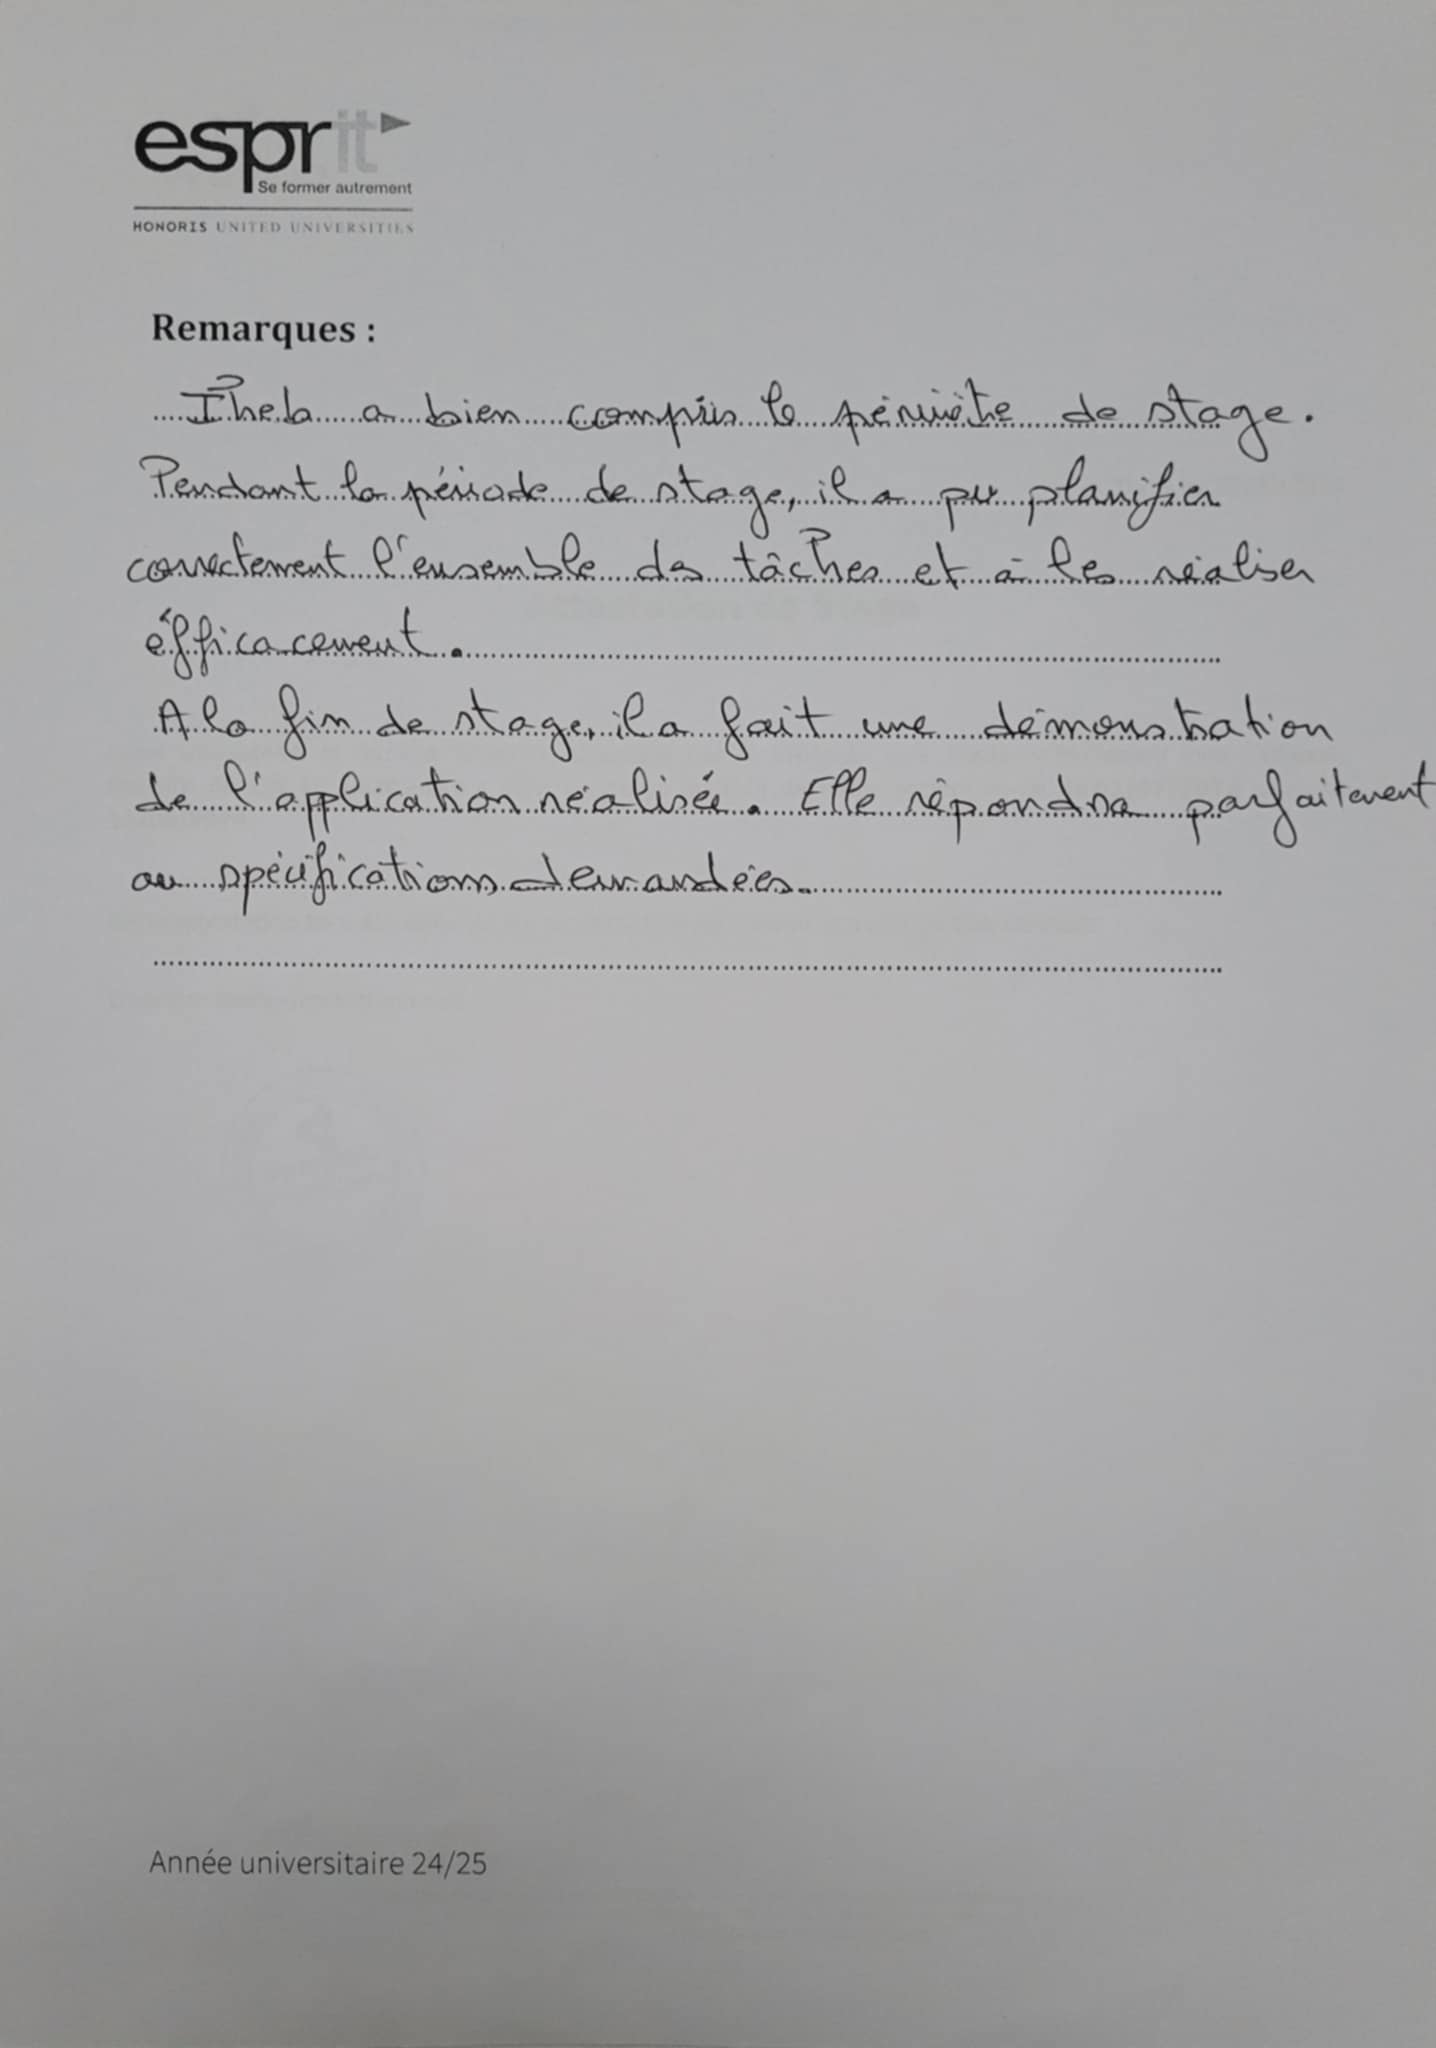 esprit
Se former autrement
HONORIS UNITED UNIVERSITIES
Remarques :
Iheb a bien compris le périmètre de stage.
Pendant la période de stage, il a pu planifier
correctement l'ensemble des tâches et à les réaliser
éfficacement.
A la fin de stage, il a fait une démonstration
de l'application réalisée. Elle répondra parfaitement
au spécifications demandées.
Année universitaire 24/25